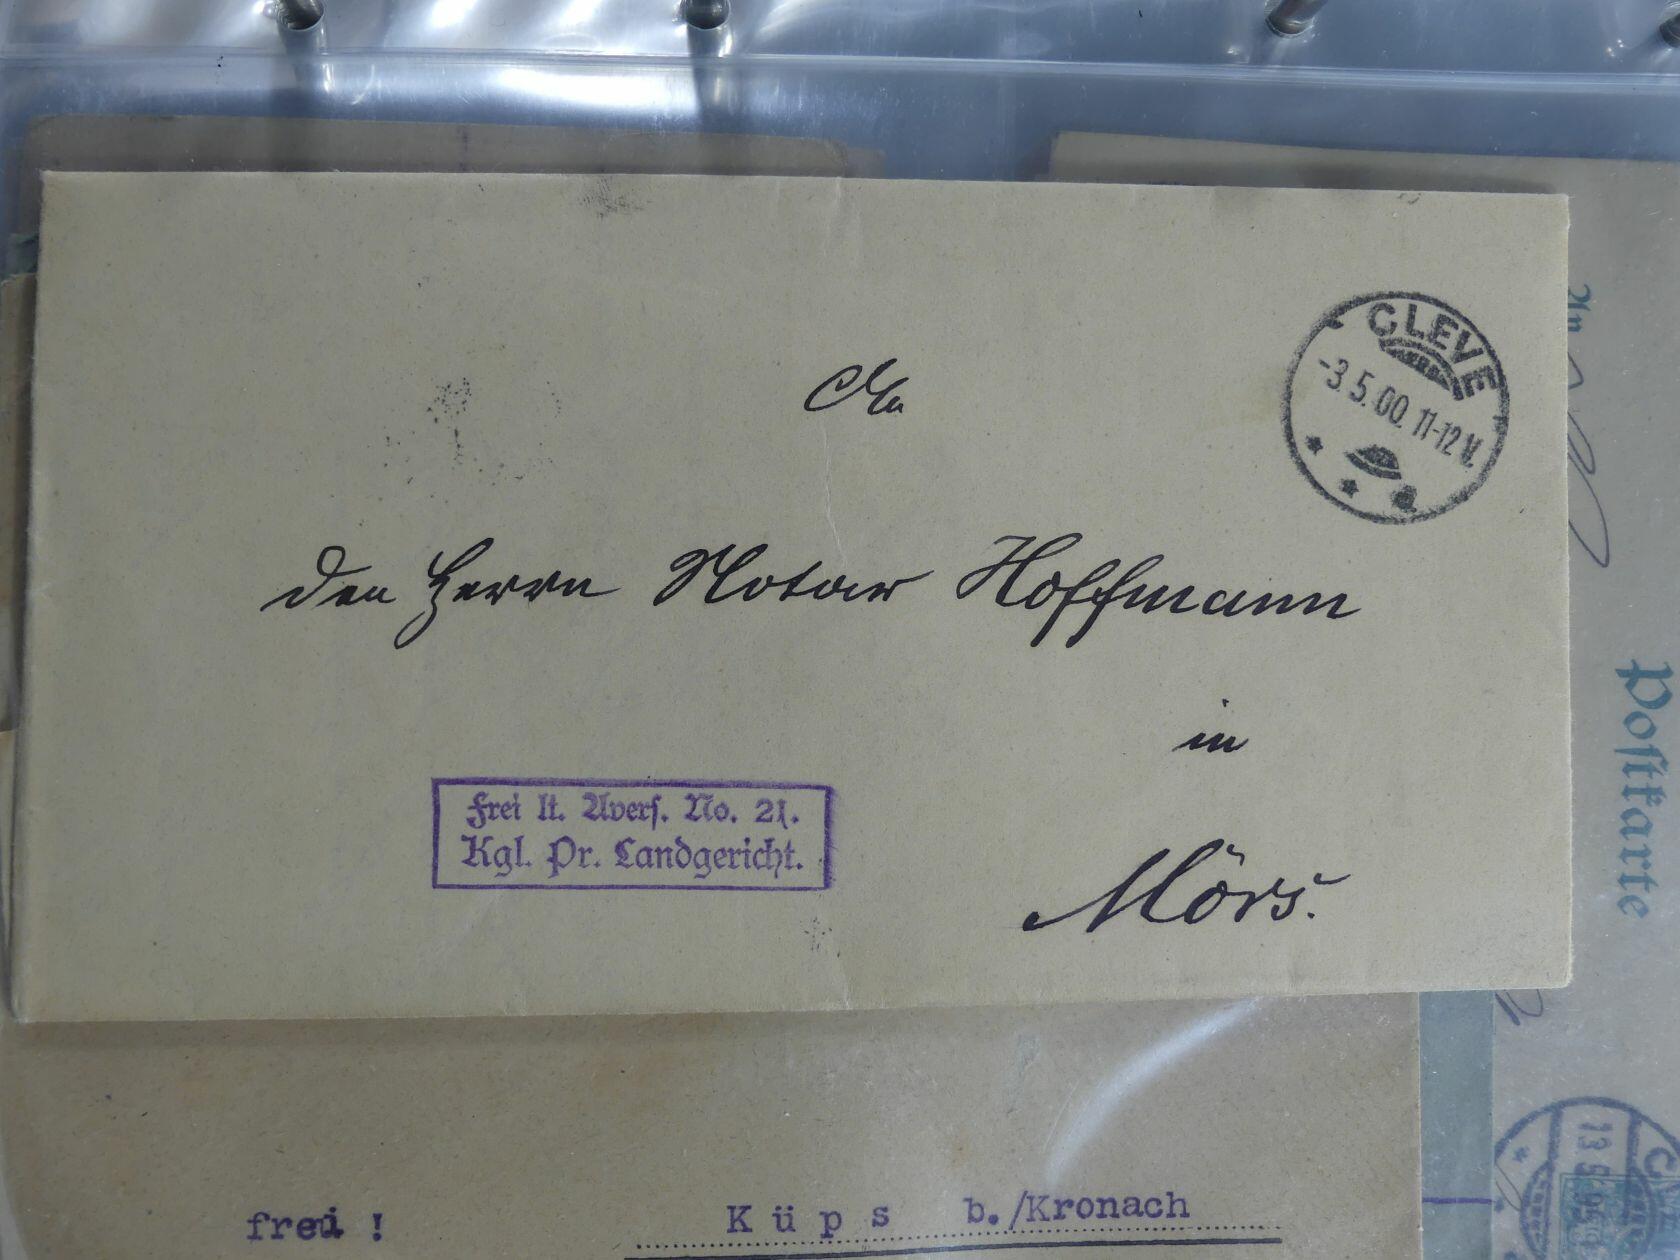 CLEVE
-3.5.00. 11-12 V.
An
den Herrn Notar Hoffmann
in
Mörs.
Frei lt. Avers. No. 21.
Kgl. Pr. Landgericht.
An
Postkarte
frei !
Küps b./Kronach